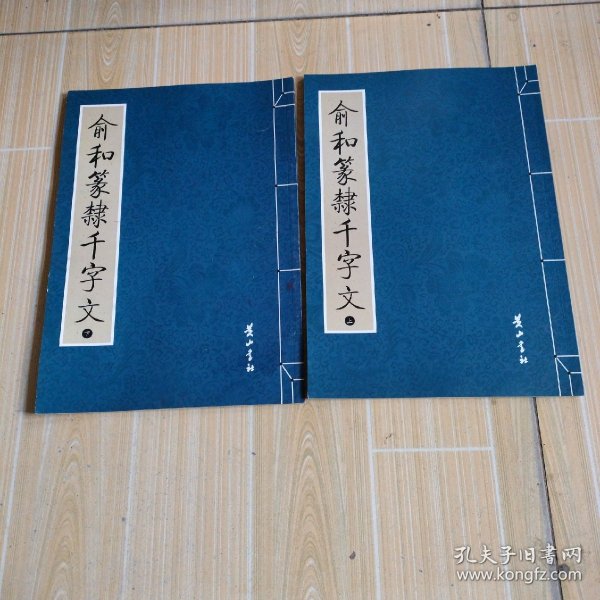 俞和篆隸千字文 下
黄山书社
俞和篆隸千字文 上
黄山书社
孔夫子旧书网
www.kongfz.com